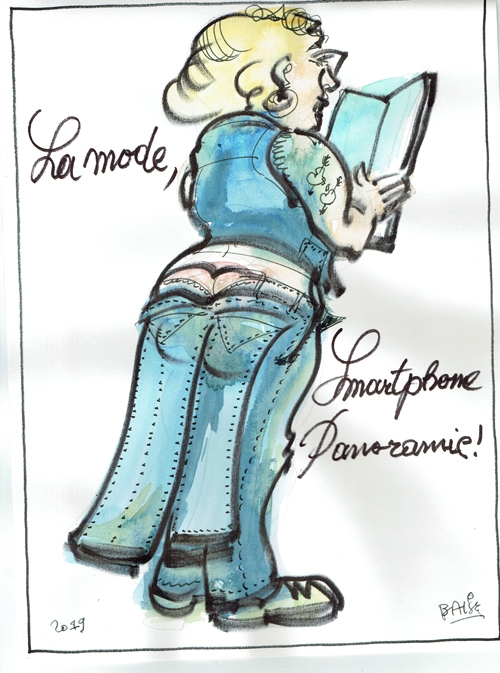 La mode,
Smartphone
Panoramic!
2019
BAISE